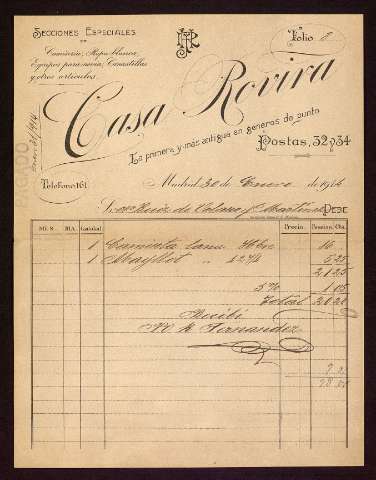 SECCIONES ESPECIALES
DE
Camisería, Ropa blanca,
Equipos para novia, Canastillas
y otros artículos.
HR
Folio
Casa Rovira
La primera y más antigua en géneros de punto
Postas, 32 y 34
PAGADO
Enero 31/914
Teléfono 161
Madrid, 30 de Enero de 1914
Sres Ruiz de Velasco y Martinez DEBE
MES. DIA. Cantidad Precio. Pesetas. Cts.
1 Camiseta lana 16
1 Mayllot " 5 25
21 25
5 % 1 05
Total 20 20
Recibí
Fernandez